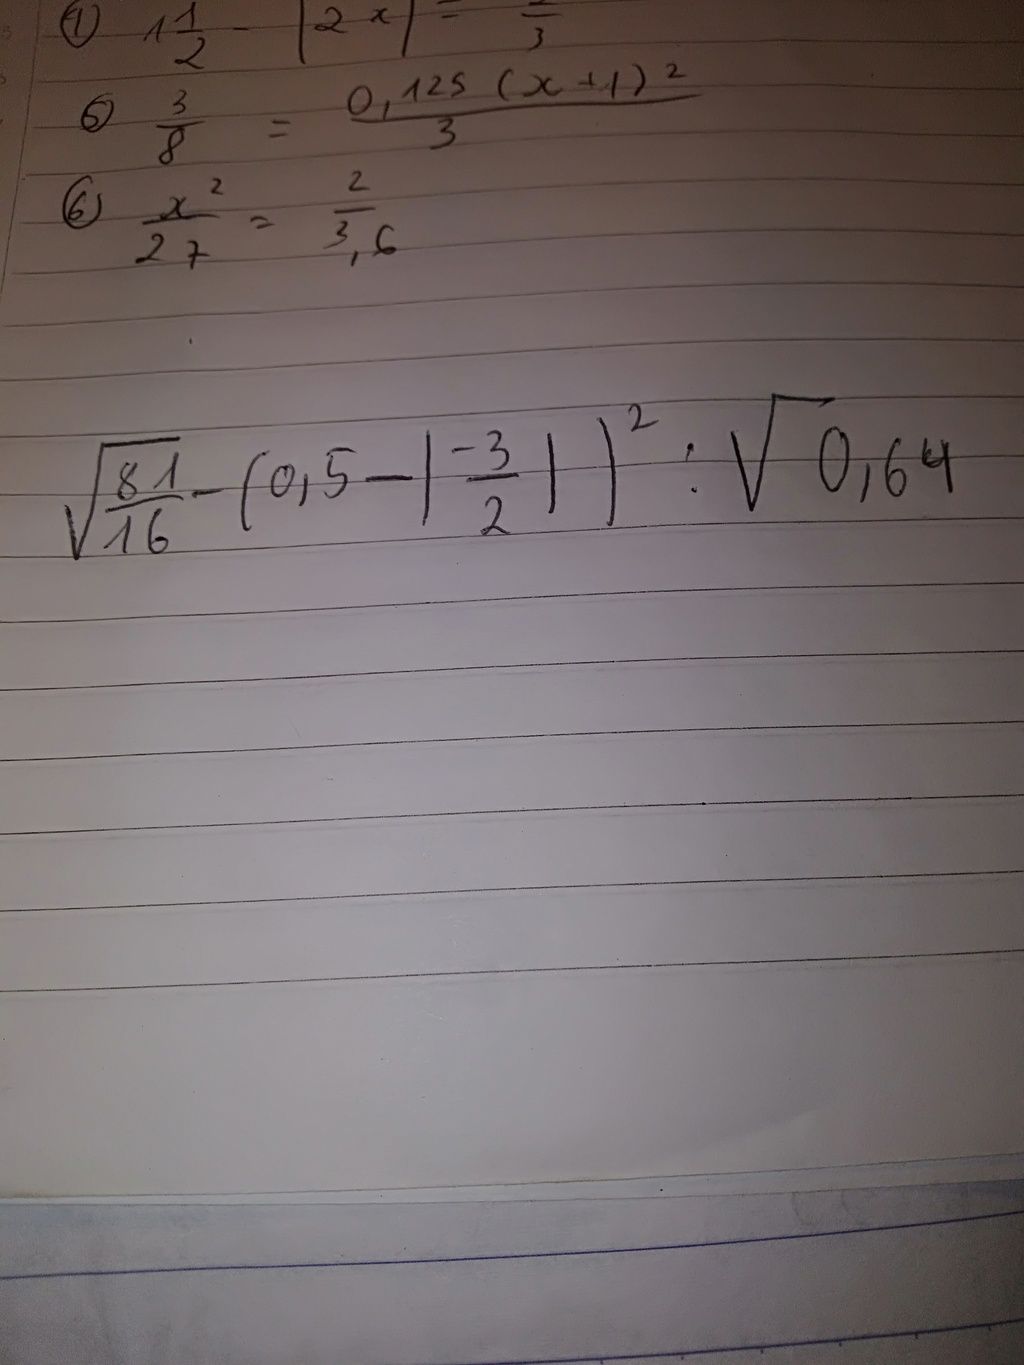 ① 1 1/2 - |2x| = 2/3
⑤ 3/8 = 0,125 (x+1)²/3
⑥ x²/27 = 2/3,6
√(81/16) - (0,5 - |-3/2|)² : √0,64